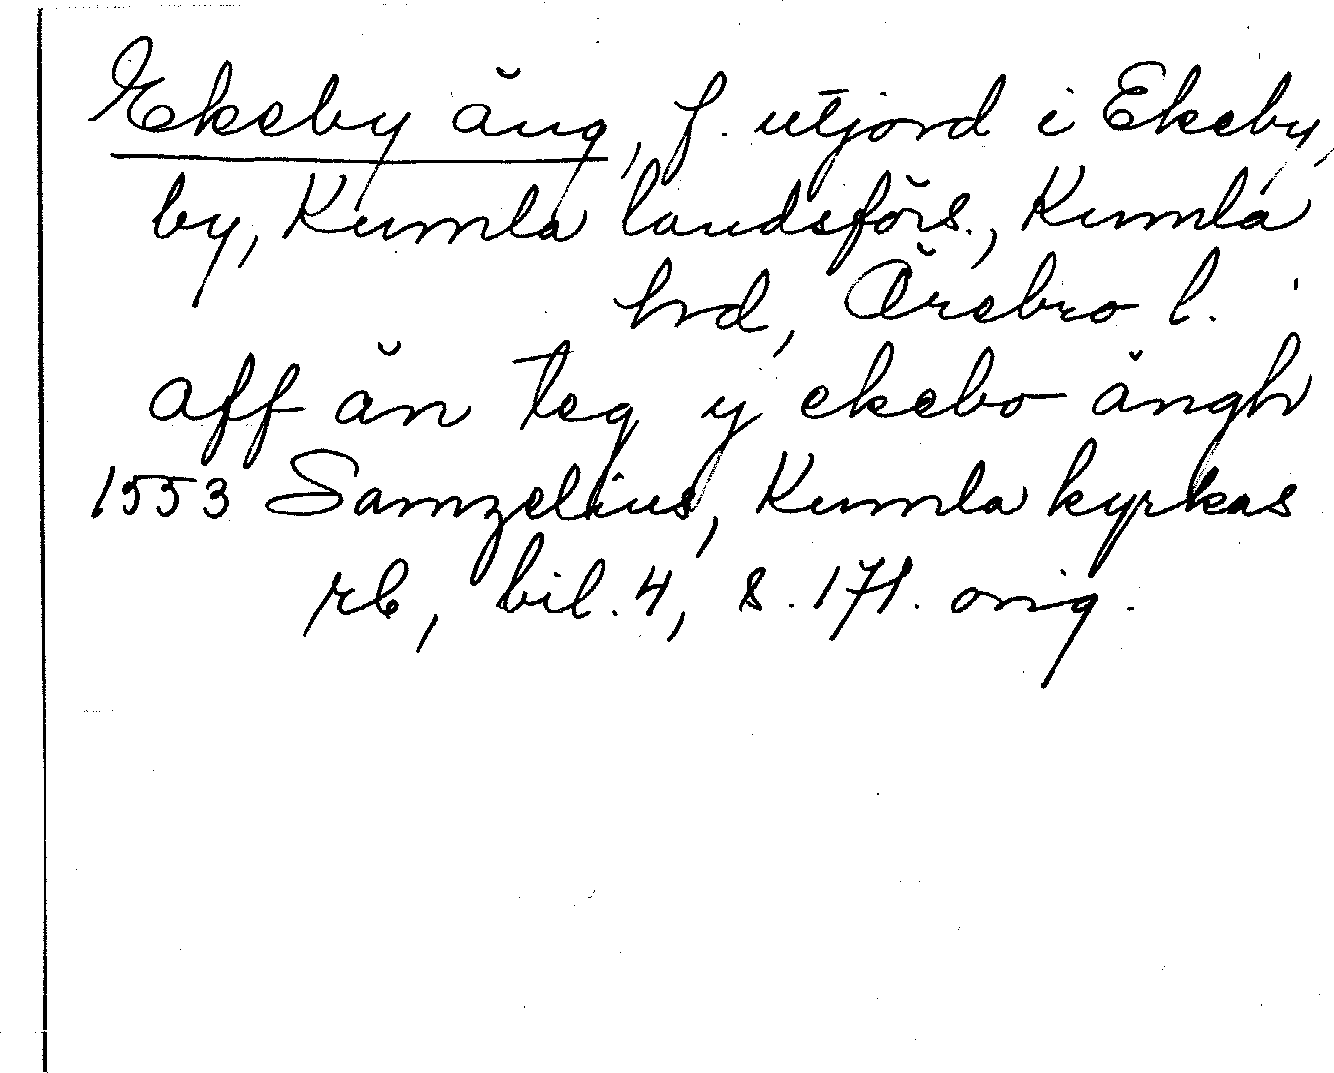 Ekeby äng, f. utjord i Ekeby,
by, Kumla landsförs., Kumla
hd, Örebro l.
aff än teg y ekebo ängh
1553 Samzelius, Kumla kyrkas
rb, bil. 4, s. 171. orig.